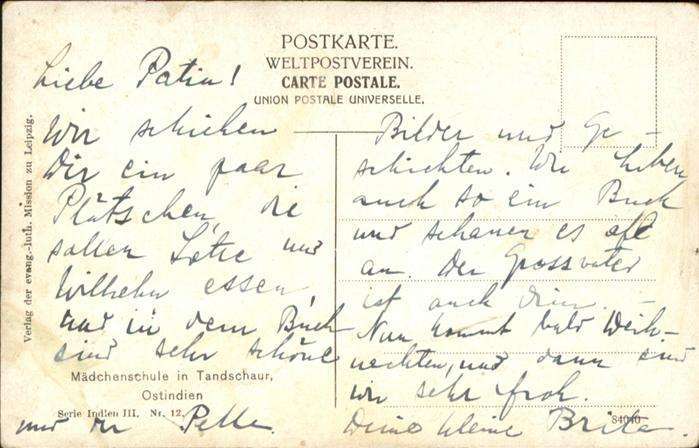 POSTKARTE.
WELTPOSTVEREIN.
CARTE POSTALE.
UNION POSTALE UNIVERSELLE.
Verlag der evang.-luth. Mission zu Leipzig.
Liebe Patin!
Wir schicken
Dir ein paar
Plätschen, die
sollen und
Wilhelm essen,
und in dem Buch
sind sehr schöne
Mädchenschule in Tandschaur,
Ostindien
Serie Indien III. Nr. 12.
und der
Bilder und Ge-
schichten. Wir haben
auch so ein Buch
und schauen es oft
an. Der Grossvater
ist auch drin. -
Nun kommt bald Weih-
nachten, und dann sind
wir sehr froh.
84040
Deine kleine